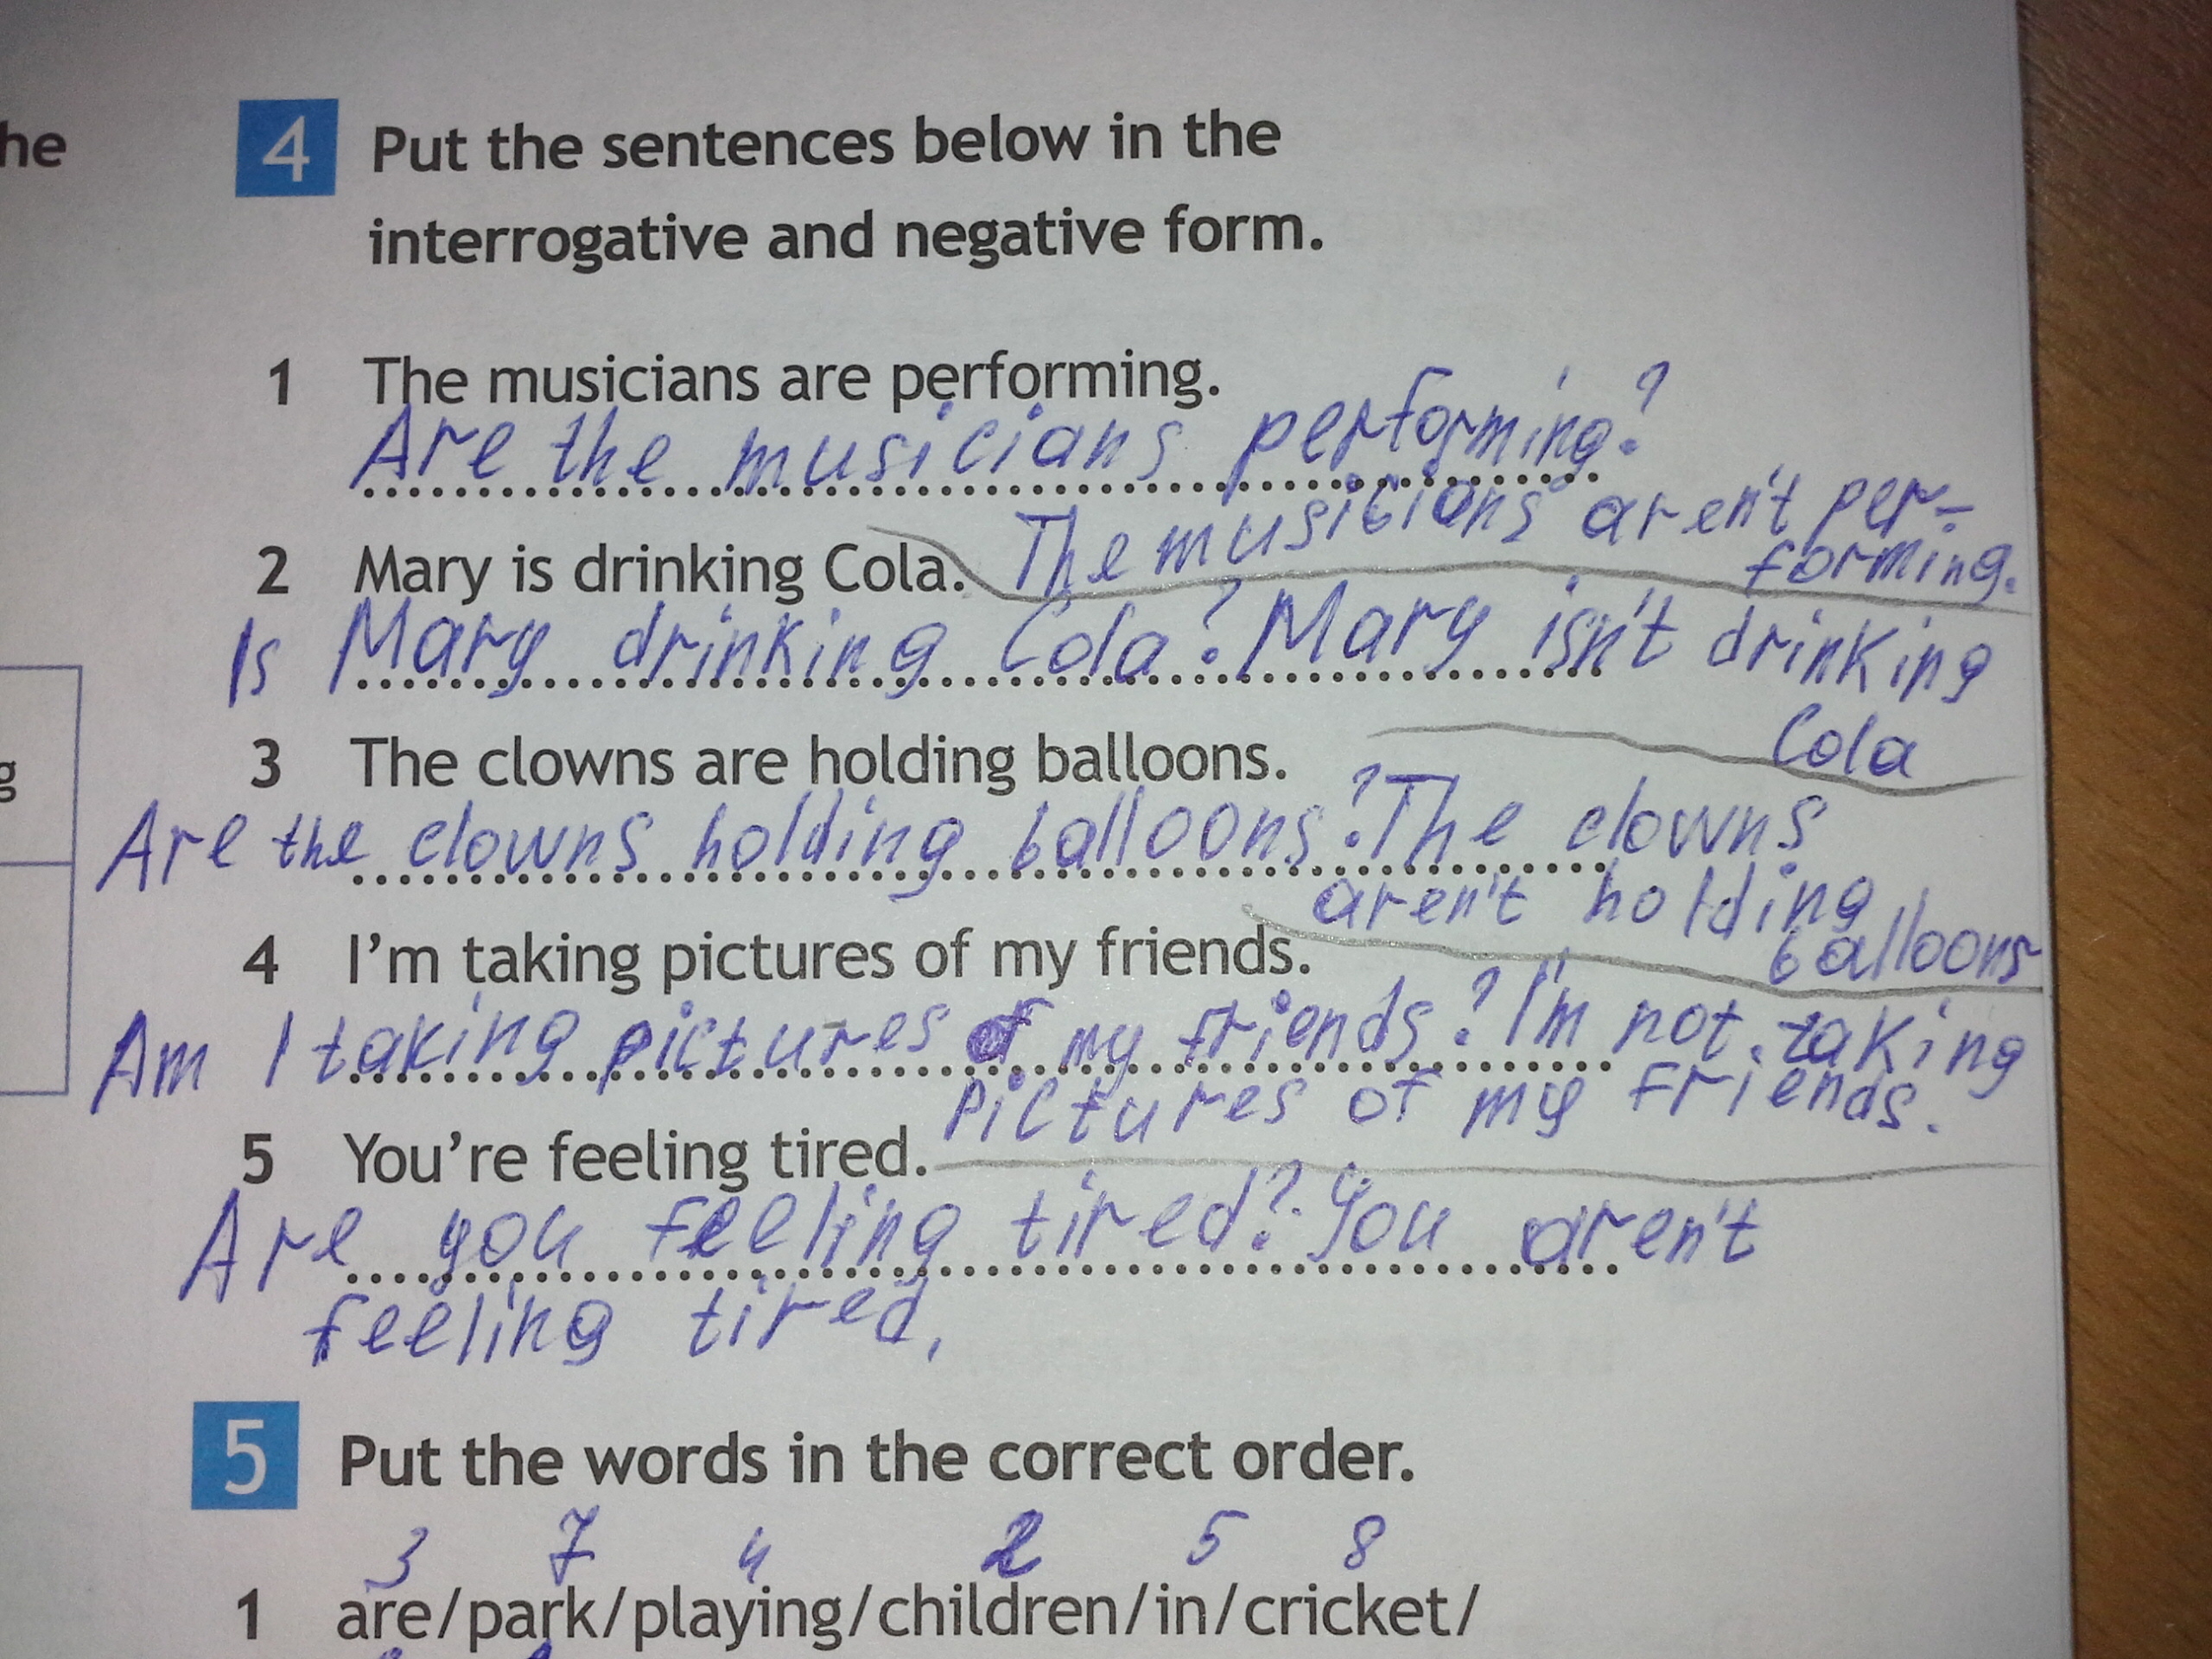 he
4 Put the sentences below in the
interrogative and negative form.
1 The musicians are performing.
Are the musicians performing?
The musicians aren't per-
forming.
2 Mary is drinking Cola.
Is Mary drinking Cola? Mary isn't drinking
Cola
3 The clowns are holding balloons.
Are the clowns holding balloons? The clowns
aren't holding
balloons
4 I'm taking pictures of my friends.
Am I taking pictures of my friends? I'm not taking
pictures of my friends.
5 You're feeling tired.
Are you feeling tired? You aren't
feeling tired.
g
5 Put the words in the correct order.
3 7 4 2 5 8
1 are/park/playing/children/in/cricket/